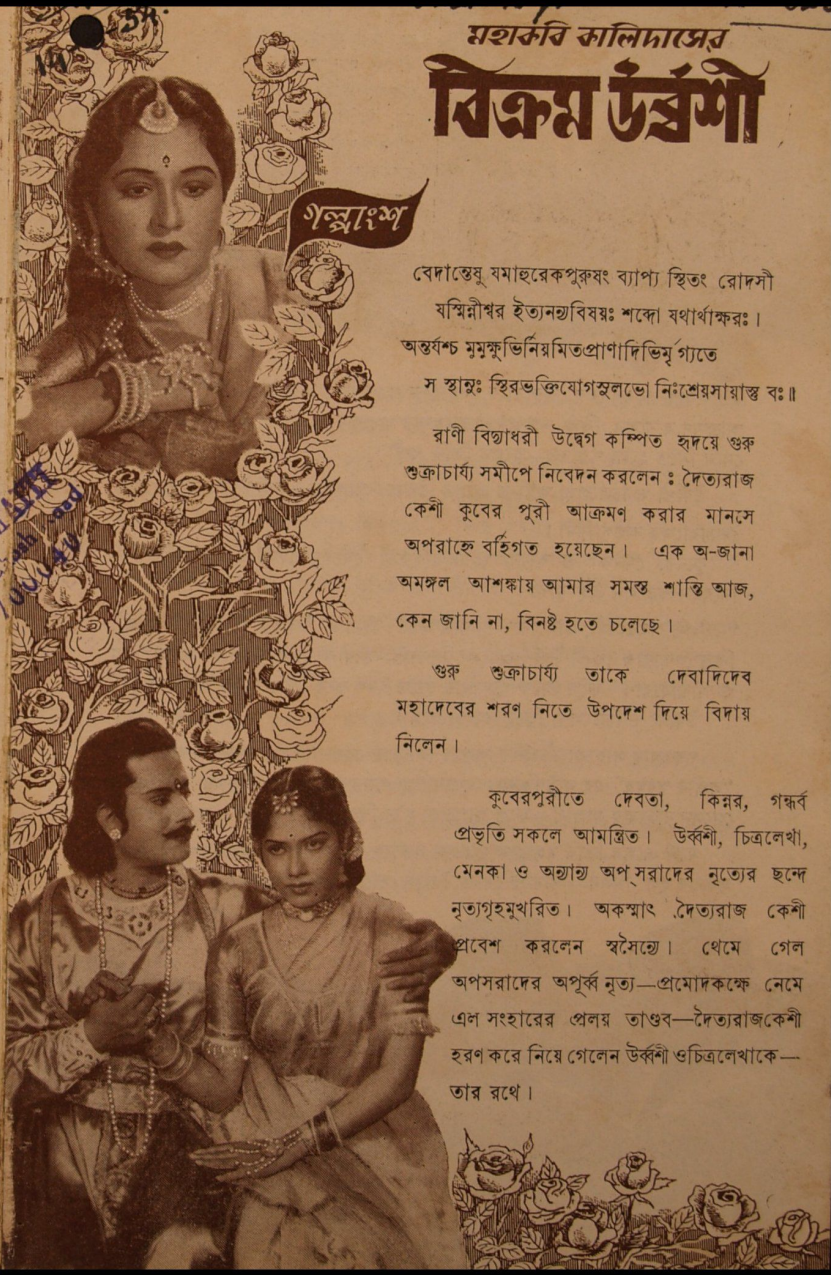 মহাকবি কালিদাসের
বিক্রম উর্ব্বশী
গল্পাংশ
বেদান্তেষু যমাহুরেকপুরুষং ব্যাপ্য স্থিতং রোদসী
যস্মিন্নীশ্বর ইত্যনন্যবিষয়ঃ শব্দো যথার্থাক্ষরঃ।
অন্তর্যশ্চ মুমুক্ষুভির্নিয়মিতপ্রাণাদিভির্মৃগ্যতে
স স্থাণুঃ স্থিরভক্তিযোগসুলভো নিঃশ্রেয়সায়াস্তু বঃ॥
রাণী বিদ্যাধরী উদ্বেগ কম্পিত হৃদয়ে গুরু
শুক্রাচার্য্য সমীপে নিবেদন করলেন : দৈত্যরাজ
কেশী কুবের পুরী আক্রমণ করার মানসে
অপরাহ্নে বর্হিগত হয়েছেন। এক অ-জানা
অমঙ্গল আশঙ্কায় আমার সমস্ত শান্তি আজ,
কেন জানি না, বিনষ্ট হতে চলেছে।
গুরু শুক্রাচার্য্য তাকে দেবাদিদেব
মহাদেবের শরণ নিতে উপদেশ দিয়ে বিদায়
নিলেন।
কুবেরপুরীতে দেবতা, কিন্নর, গন্ধর্ব
প্রভৃতি সকলে আমন্ত্রিত। উর্ব্বশী, চিত্রলেখা,
মেনকা ও অন্যান্য অপ্সরাদের নৃত্যের ছন্দে
নৃত্যগৃহমুখরিত। অকস্মাৎ দৈত্যরাজ কেশী
প্রবেশ করলেন স্বসৈন্যে। থেমে গেল
অপসরাদের অপূর্ব্ব নৃত্য—প্রমোদকক্ষে নেমে
এল সংহারের প্রলয় তাণ্ডব—দৈত্যরাজকেশী
হরণ করে নিয়ে গেলেন উর্ব্বশী ওচিত্রলেখাকে—
তার রথে।